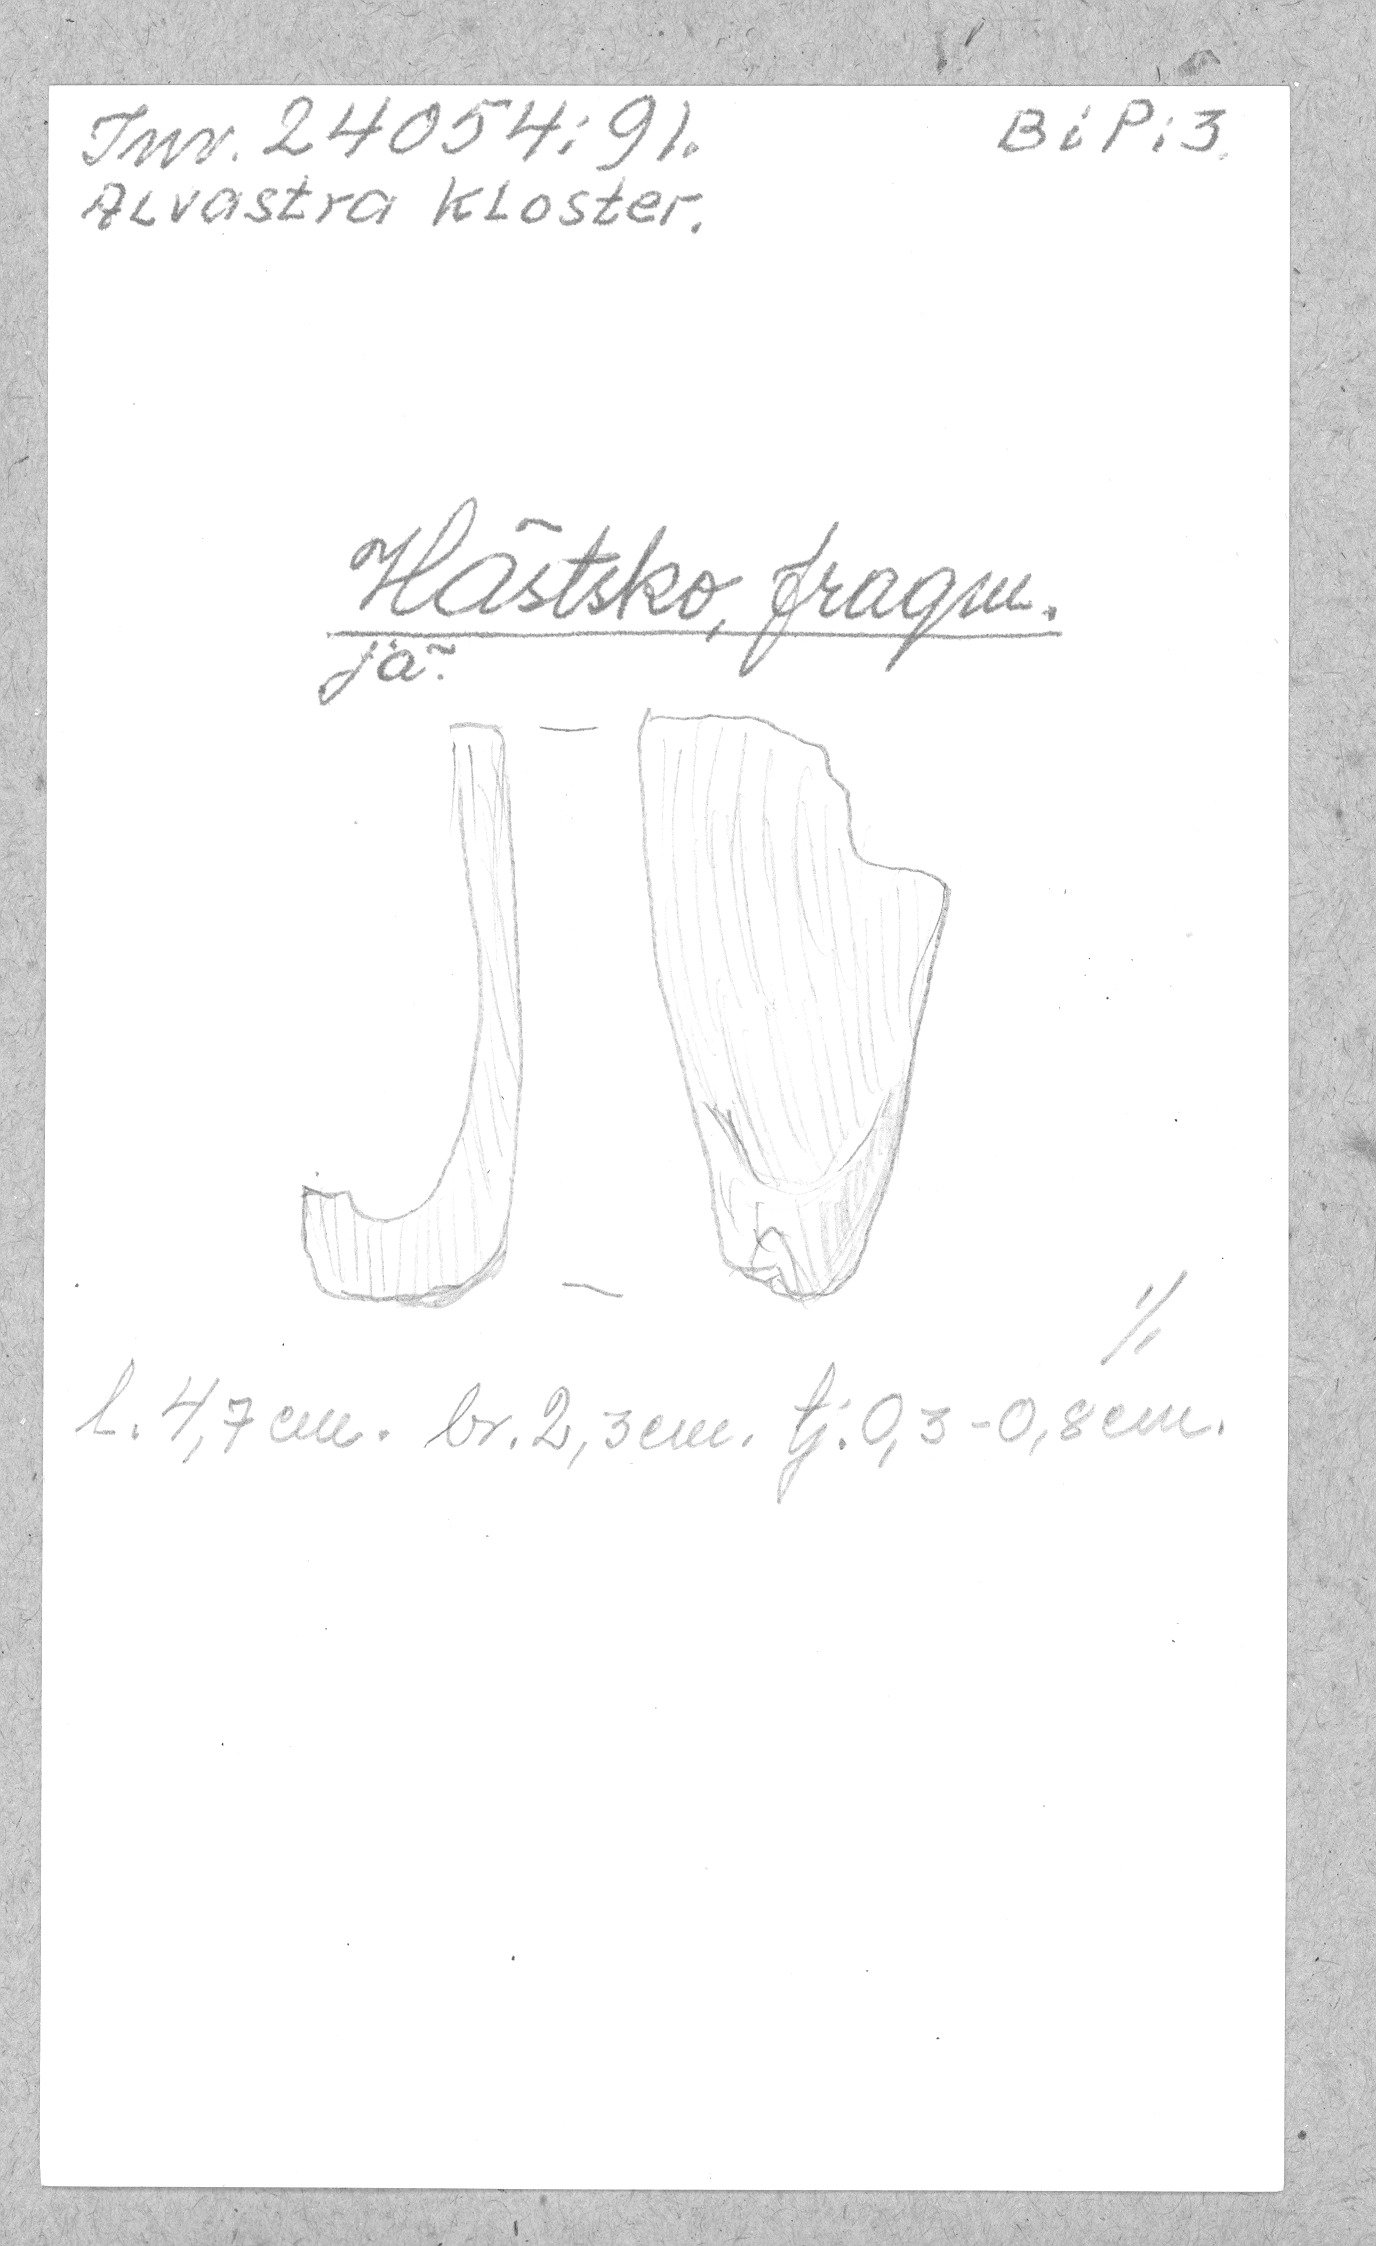 Inv. 24054:91.
B i P:3.
Alvastra Kloster.
Hästsko, fragm.
jä.
1/1
l. 4,7 cm. br. 2,3 cm. tj: 0,3-0,8 cm.